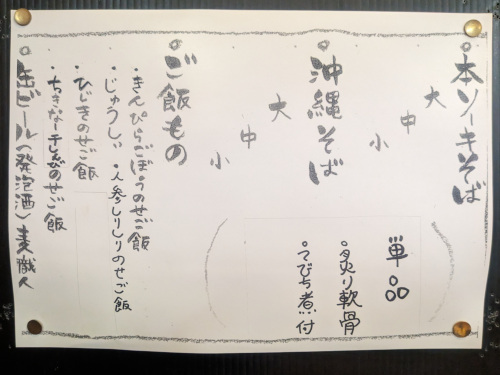 ○本ソーキそば
大
中
小
単品
・炙り軟骨
・てびち煮付
○沖縄そば
大
中
小
○ご飯もの
・きんぴらごぼうのせご飯
・じゅうしぃ ・人参しりしりのせご飯
・ひじきのせご飯
・ちきなーチャンプルのせご飯
○缶ビール(発泡酒)麦職人